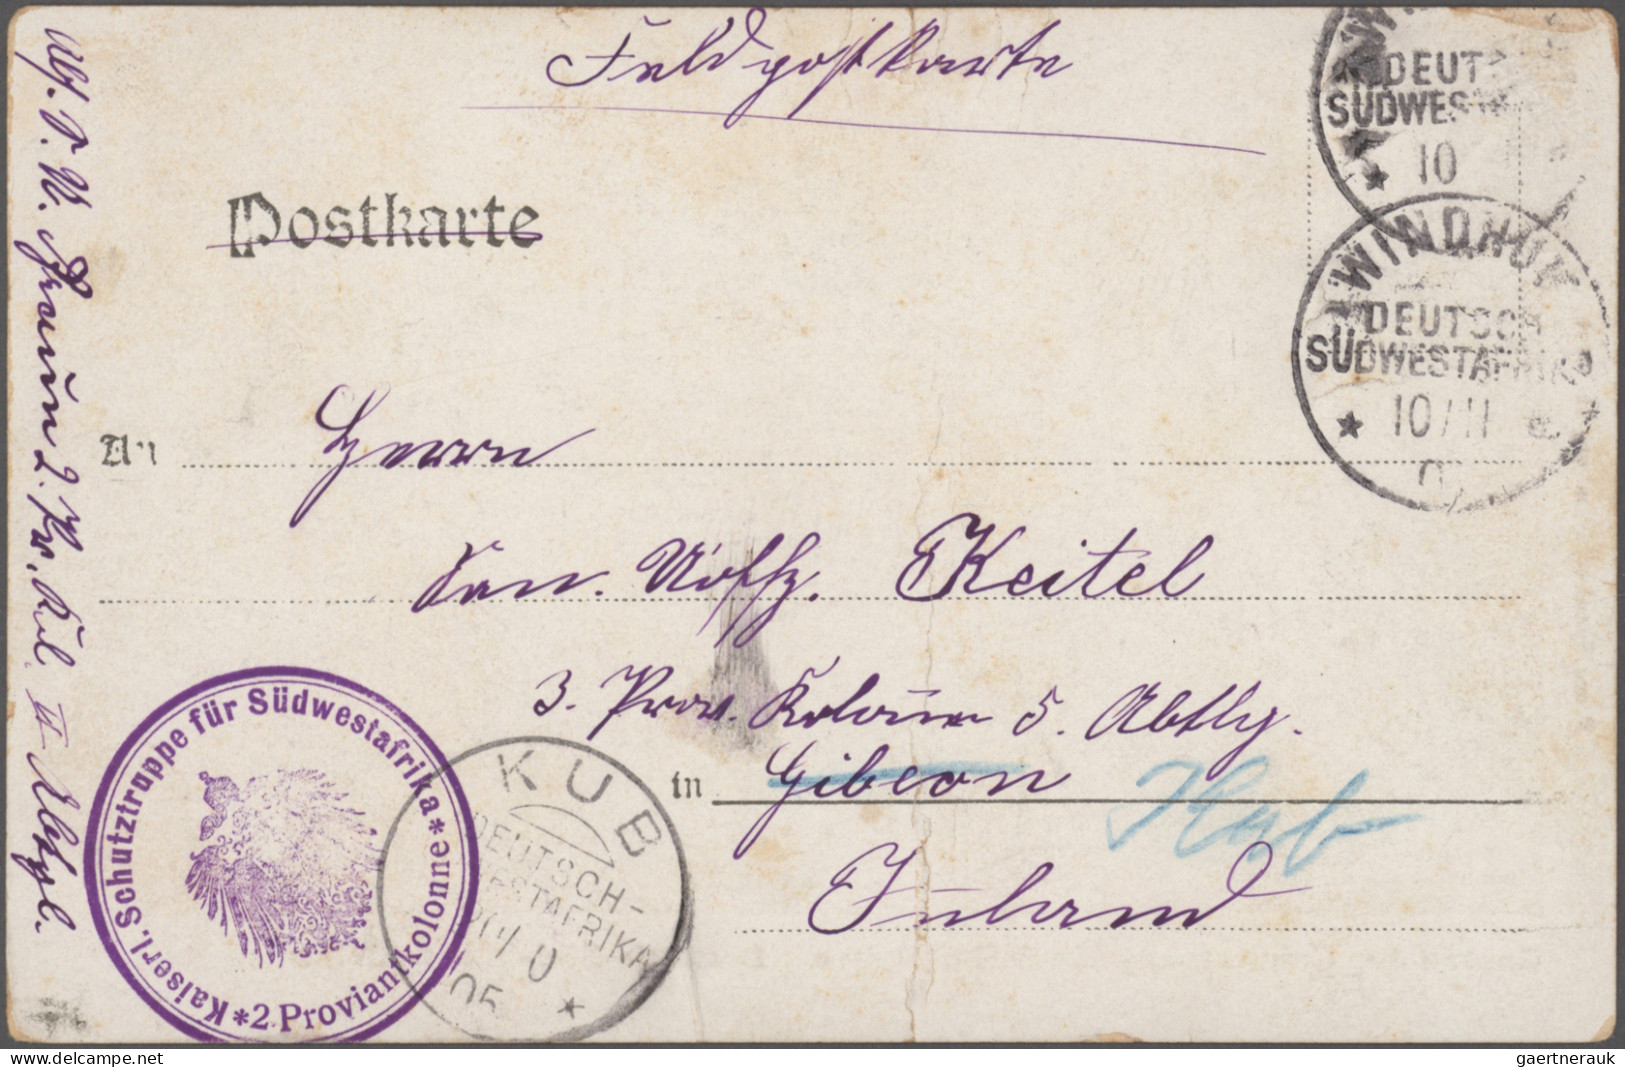 Feldpostkarte
Postkarte
DEUT
SÜDWEST
* 10
WINDHUK
DEUTSCH
SÜDWESTAFRIKA
* 10/11
An Herrn
San. Uoffz. Keitel
3. Prov. Kolonne 5. Abtlg.
in Gibeon Kub
Inland
Abs. P. W. Braun 2. Pr. Kol. II Abtgl.
Kaiserl. Schutztruppe für Südwestafrika
* 2 Proviantkolonne *
KUB
DEUTSCH-
SÜDWESTAFRIKA
05 *
gaertnerauk